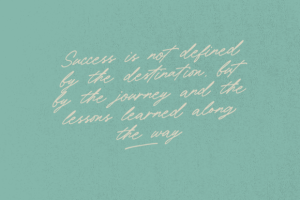 Success is not defined
by the destination, but
by the journey and the
lessons learned along
the way